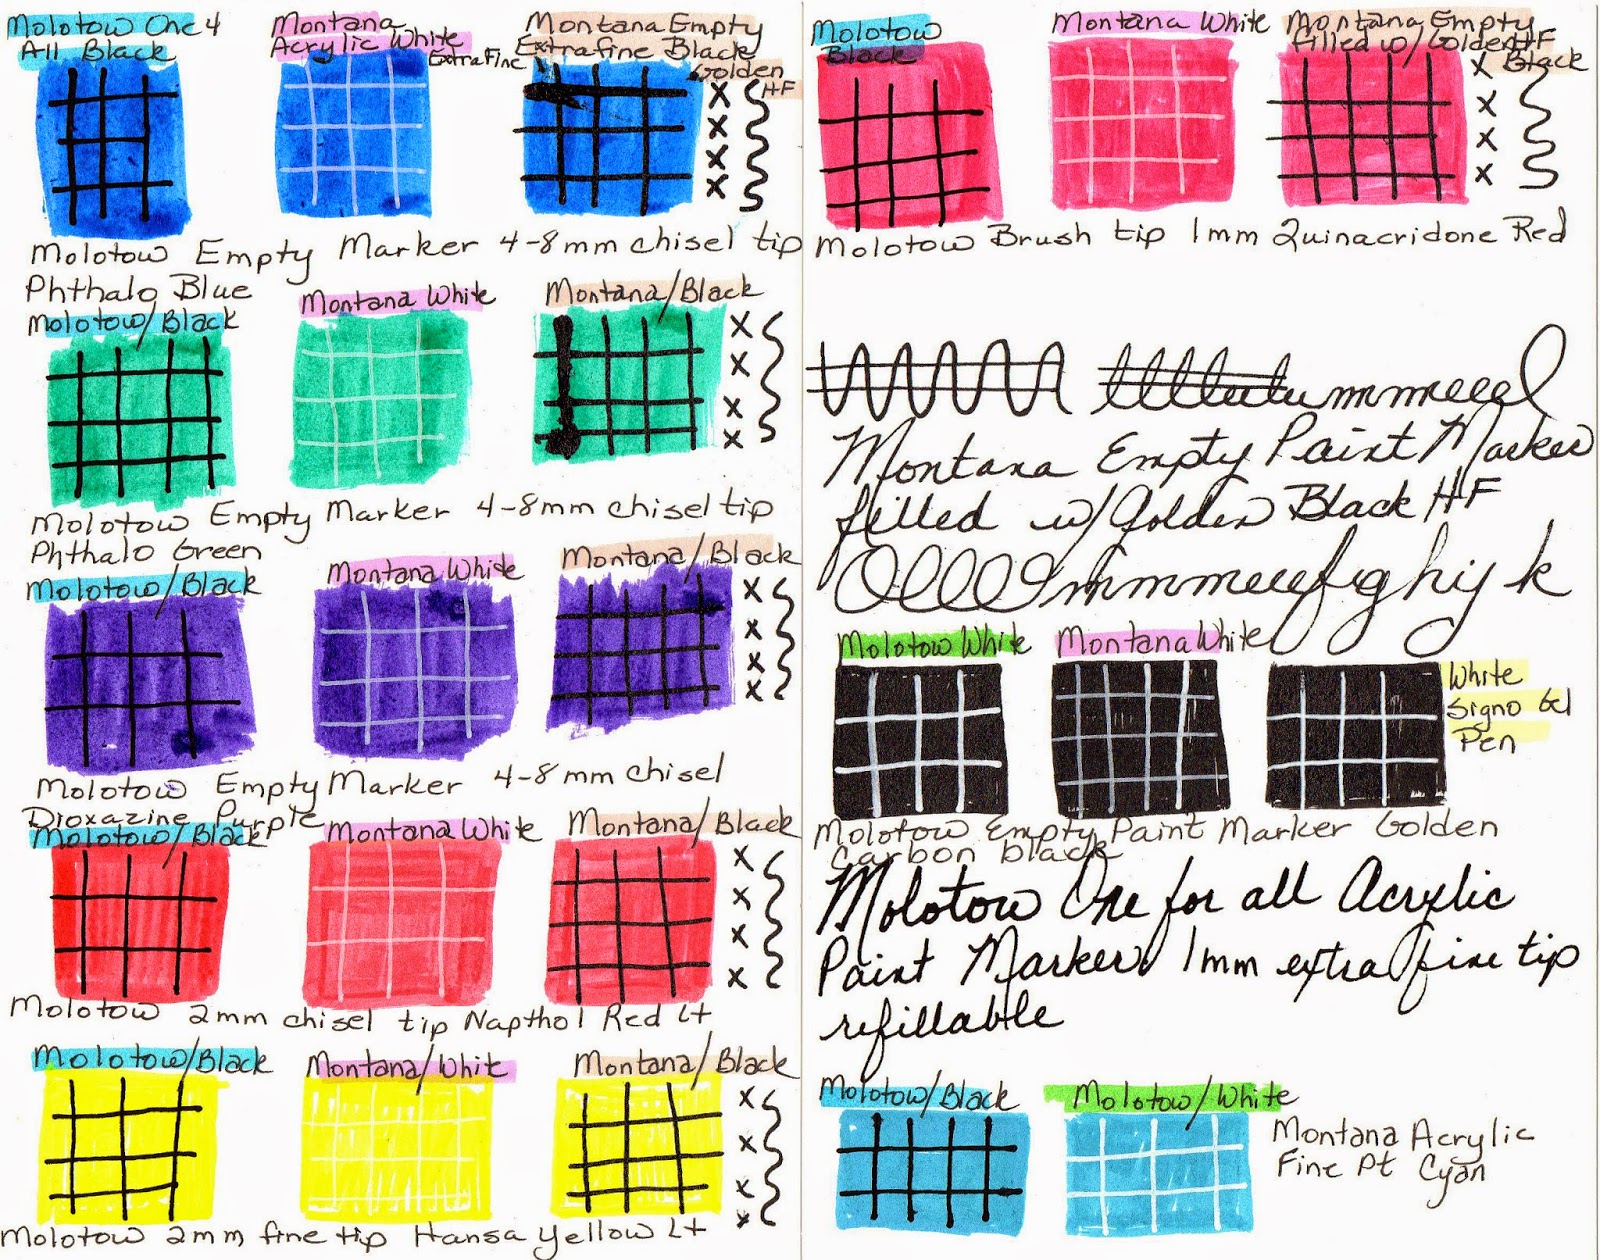 Molotow One 4
All Black
Montana
Acrylic White
Extra Fine
Montana Empty
Extrafine Black
Golden
HF
Molotow Empty Marker 4-8mm chisel tip
Phthalo Blue
Molotow/Black
Montana White
Montana/Black
Molotow Empty Marker 4-8mm chisel tip
Phthalo Green
Molotow/Black
Montana White
Montana/Black
Molotow Empty Marker 4-8mm chisel
Dioxazine Purple
Molotow/Black
Montana White
Montana/Black
Molotow 2mm chisel tip Napthol Red Lt
Molotow/Black
Montana/White
Montana/Black
Molotow 2mm fine tip Hansa Yellow Lt
Molotow
Black
Montana White
Montana Empty
filled w/ Golden HF
Black
Molotow Brush tip 1mm Quinacridone Red
Montana Empty Paint Marker
filled w/ Golden Black HF
fghijk
Molotow White
Montana White
White
Signo Gel
Pen
Molotow Empty Paint Marker Golden
Carbon black
Molotow One for all Acrylic
Paint Marker 1mm extra fine tip
refillable
Molotow/Black
Molotow/White
Montana Acrylic
Fine Pt Cyan